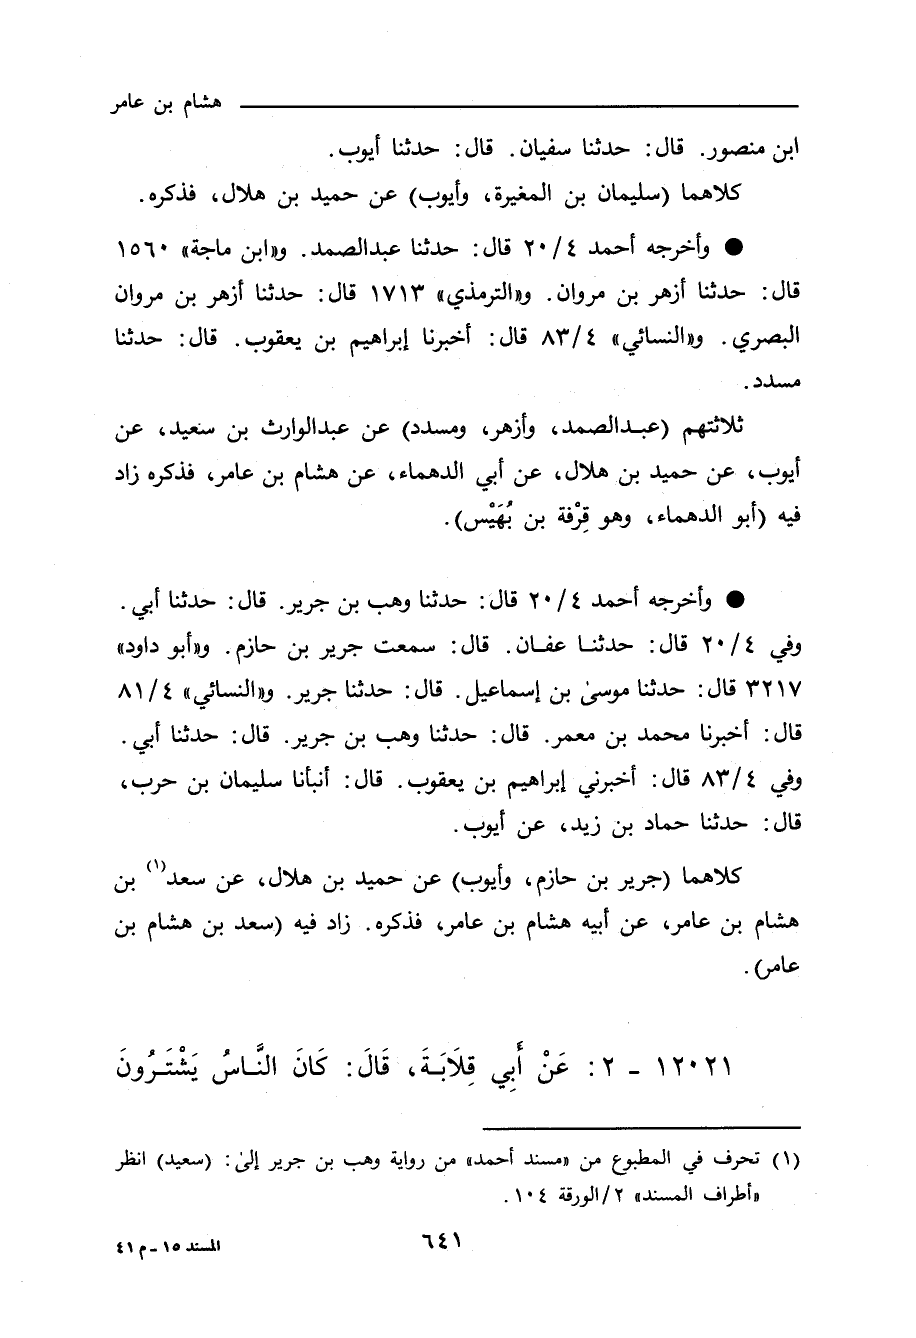 هشام بن عامر
ابن منصور. قال: حدثنا سفيان. قال: حدثنا أيوب.
كلاهما (سليمان بن المغيرة، وأيوب) عن حميد بن هلال، فذكره.
● وأخرجه أحمد ٢٠/٤ قال: حدثنا عبدالصمد. و«ابن ماجة» ١٥٦٠
قال: حدثنا أزهر بن مروان. و«الترمذي» ١٧١٣ قال: حدثنا أزهر بن مروان
البصري. و«النسائي» ٨٣/٤ قال: أخبرنا إبراهيم بن يعقوب. قال: حدثنا
مسدد.
ثلاثتهم (عبدالصمد، وأزهر، ومسدد) عن عبدالوارث بن سعيد، عن
أيوب، عن حميد بن هلال، عن أبي الدهماء، عن هشام بن عامر، فذكره زاد
فيه (أبو الدهماء، وهو قِرْفة بن بُهَيْس).
● وأخرجه أحمد ٢٠/٤ قال: حدثنا وهب بن جرير. قال: حدثنا أبي.
وفي ٢٠/٤ قال: حدثنا عفان. قال: سمعت جرير بن حازم. و«أبو داود»
٣٢١٧ قال: حدثنا موسىٰ بن إسماعيل. قال: حدثنا جرير. و«النسائي» ٨١/٤
قال: أخبرنا محمد بن معمر. قال: حدثنا وهب بن جرير. قال: حدثنا أبي.
وفي ٨٣/٤ قال: أخبرني إبراهيم بن يعقوب. قال: أنبأنا سليمان بن حرب،
قال: حدثنا حماد بن زيد، عن أيوب.
كلاهما (جرير بن حازم، وأيوب) عن حميد بن هلال، عن سعد(١) بن
هشام بن عامر، عن أبيه هشام بن عامر، فذكره. زاد فيه (سعد بن هشام بن
عامر).
١٢٠٢١ - ٢: عَنْ أَبِي قِلَابَةَ، قَالَ: كَانَ النَّاسُ يَشْتَرُونَ
(١) تحرف في المطبوع من «مسند أحمد» من رواية وهب بن جرير إلىٰ: (سعيد) انظر
«أطراف المسند» ٢/الورقة ١٠٤.
٦٤١
المسند ١٥ - م ٤١